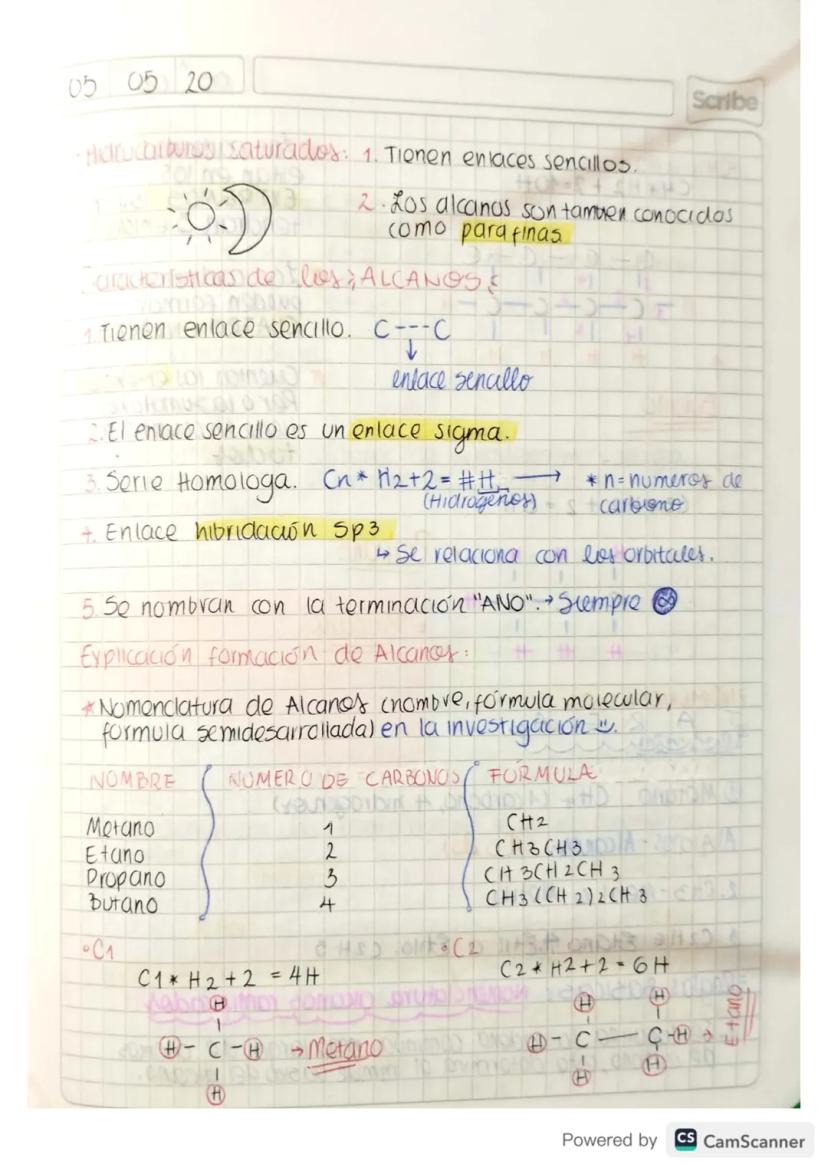 05 05 20
Scribe
Hidrocarburos saturados: 1. Tienen enlaces sencillos.
2. Los alcanos son tamven conocidos
como parafinas
Características de los ¡ALCANOS!
1. Tienen enlace sencillo. C---C
↓
enlace sencillo
2. El enlace sencillo es un enlace sigma.
3. Serie Homologa. Cn* H2+2= #H → *n=numeros de
(Hidrogenos) carbono
4. Enlace hibridación Sp3
↳ Se relaciona con los orbitales.
5. Se nombran con la terminación "ANO". → Siempre
Explicación formación de Alcanos:
*Nomenclatura de Alcanos (nombre, fórmula molecular,
formula semidesarrollada) en la investigación
NOMBRE NUMERO DE CARBONOS FORMULA
Metano 1 CH2
Etano 2 CH3CH3
Propano 3 CH3CH2CH3
Butano 4 CH3(CH2)2CH3
°C1 °C2
C1* H2+2 = 4H C2* H2+2 = 6H
H H H
H - C - H → Metano H - C — C - H → Etano
H H H
Powered by CS CamScanner